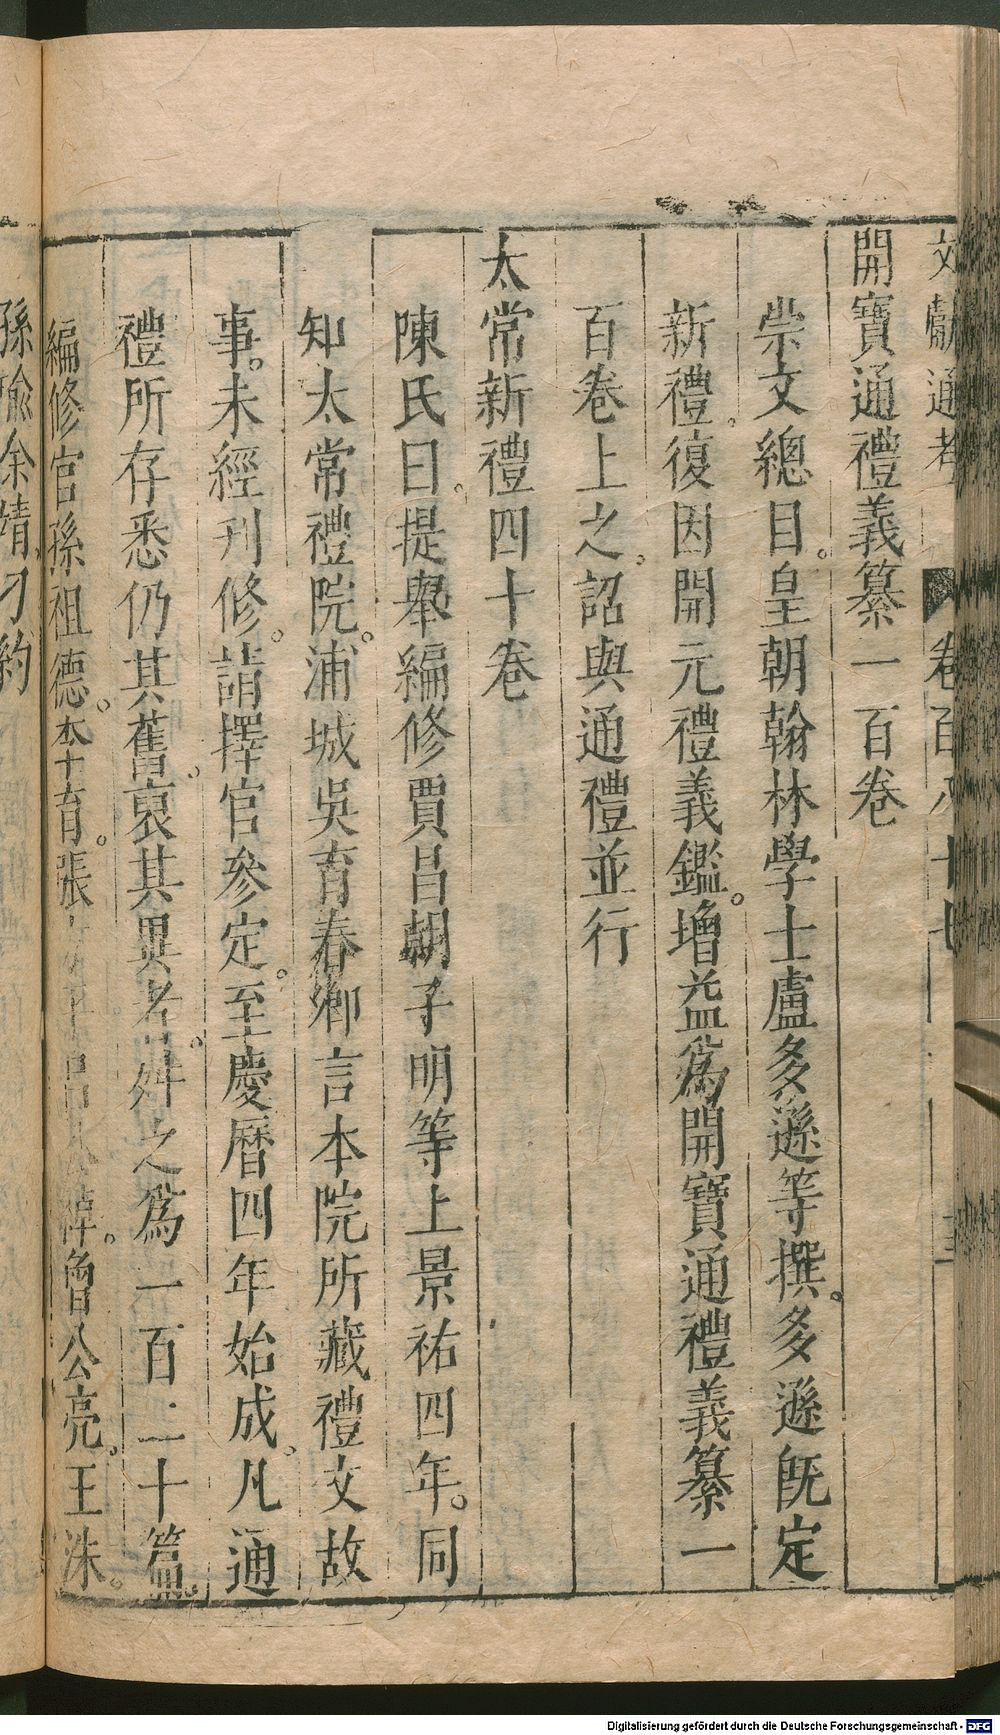 文獻通考 卷百八十七
開寶通禮義纂一百卷
崇文總目。皇朝翰林學士盧多遜等撰。多遜旣定
新禮。復因開元禮義鑑。增益爲開寶通禮義纂一
百卷上之。詔與通禮並行
太常新禮四十卷
陳氏曰。提舉編修賈昌朝子明等上景祐四年。同
知太常禮院。浦城吳育春卿言本院所藏禮文故
事。未經刊修。請擇官參定。至慶曆四年始成。凡通
禮所存悉仍其舊。裒其異者。舛之爲一百二十篇。
編修官孫祖德。李育。張 公亮。王洙。
孫瑜余靖。刁約
Digitalisierung gefördert durch die Deutsche Forschungsgemeinschaft - DFG